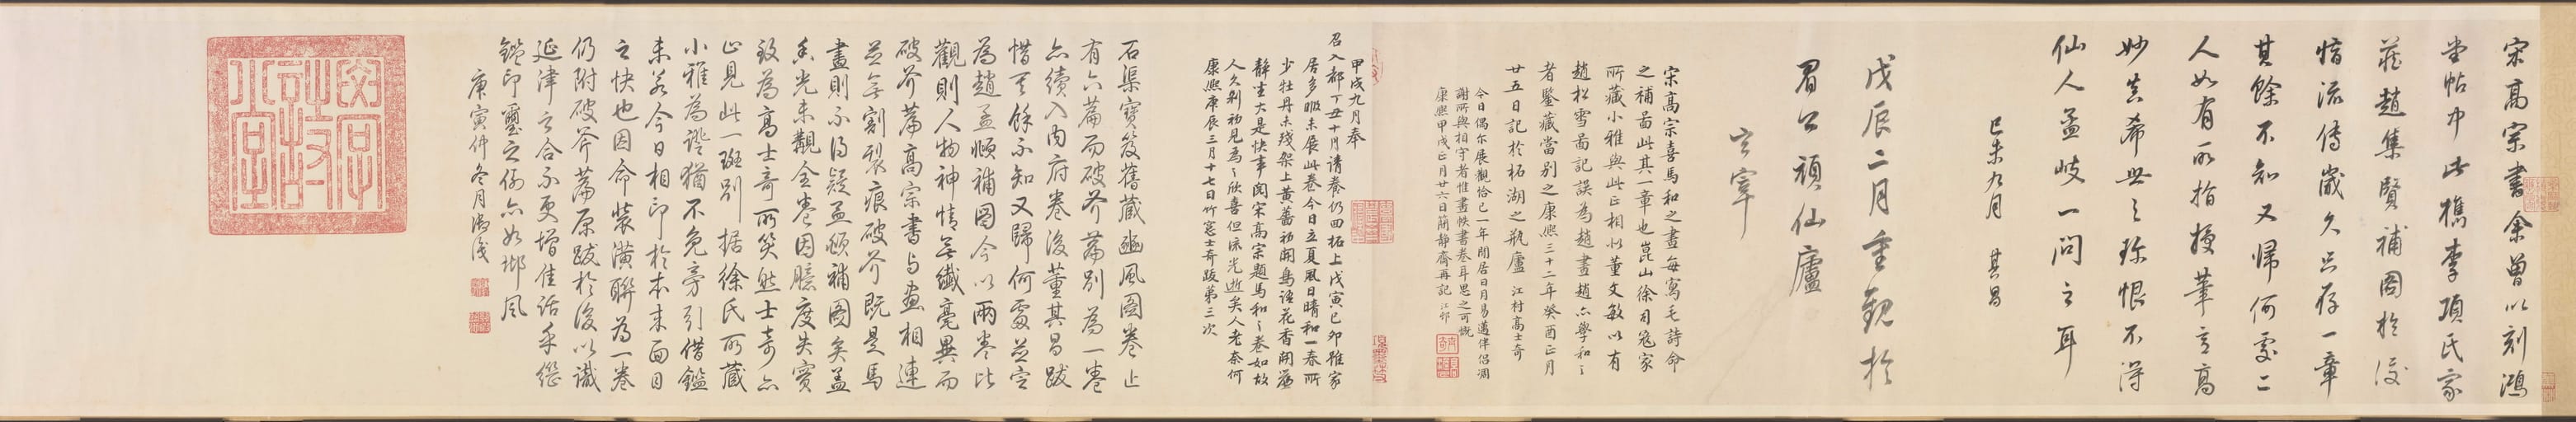 宋高宗書余曾以刻鴻
堂帖中此檇李項氏家
藏趙集賢補圖於後
惜流傳歲久只存一章
其餘不知又歸何處二
人如有所指授筆意高
妙真希世之珍恨不得
仙人孟岐一問之耳
己未九月 其昌
戊辰二月重觀於
眉公頑仙廬
玄宰
宋高宗喜馬和之畫每寫毛詩命
之補啚此其一章也崑山徐司寇家
所藏小雅與此正相似董文敏以有
趙松雪啚記誤為趙畫趙亦學和之
者鑒藏當別之康熙三十二年癸酉正月
廿五日記於柘湖之瓶廬 江村高士奇
今日偶尔展觀恰已一年閒居日月易邁伴侶凋
謝所與相守者惟畫帙書卷耳思之可慨
康熙甲戌正月廿六日蕑靜齋再記 江邨
甲戌九月奉
召入都丁丑十月請養仍回柘上戊寅己卯雖家
居多暇未展此卷今日立夏風日晴和一春所
少牡丹未殘架上黃薔初開鳥語花香閉簾
靜坐大是快事閱宋高宗題馬和之卷如故
人久別初見為之欣喜但流光逝矣人老奈何
康熙庚辰三月十七日竹窗士奇跋第三次
石渠寶笈舊藏豳風圖卷止
有六篇而破斧篇別為一卷
亦續入內府卷後董其昌跋
惜其餘不知又歸何處並定
為趙孟頫補圖今以兩卷比
觀則人物神情無纖毫異而
破斧篇高宗書与畫相連
並無割裂痕破斧既是馬
畫則不得疑孟頫補圖矣盖
香光未觀全卷因臆度失實
致為高士奇所笑然士奇亦
止見此一斑別據徐氏所藏
小雅為證猶不免旁引借鑑
未若今日相印於本來面目
之快也因命裝潢聯為一卷
仍附破斧篇原跋於後以識
延津之合不更增佳話乎繼
鑑印璽之例亦如鄁風
庚寅仲冬月御識